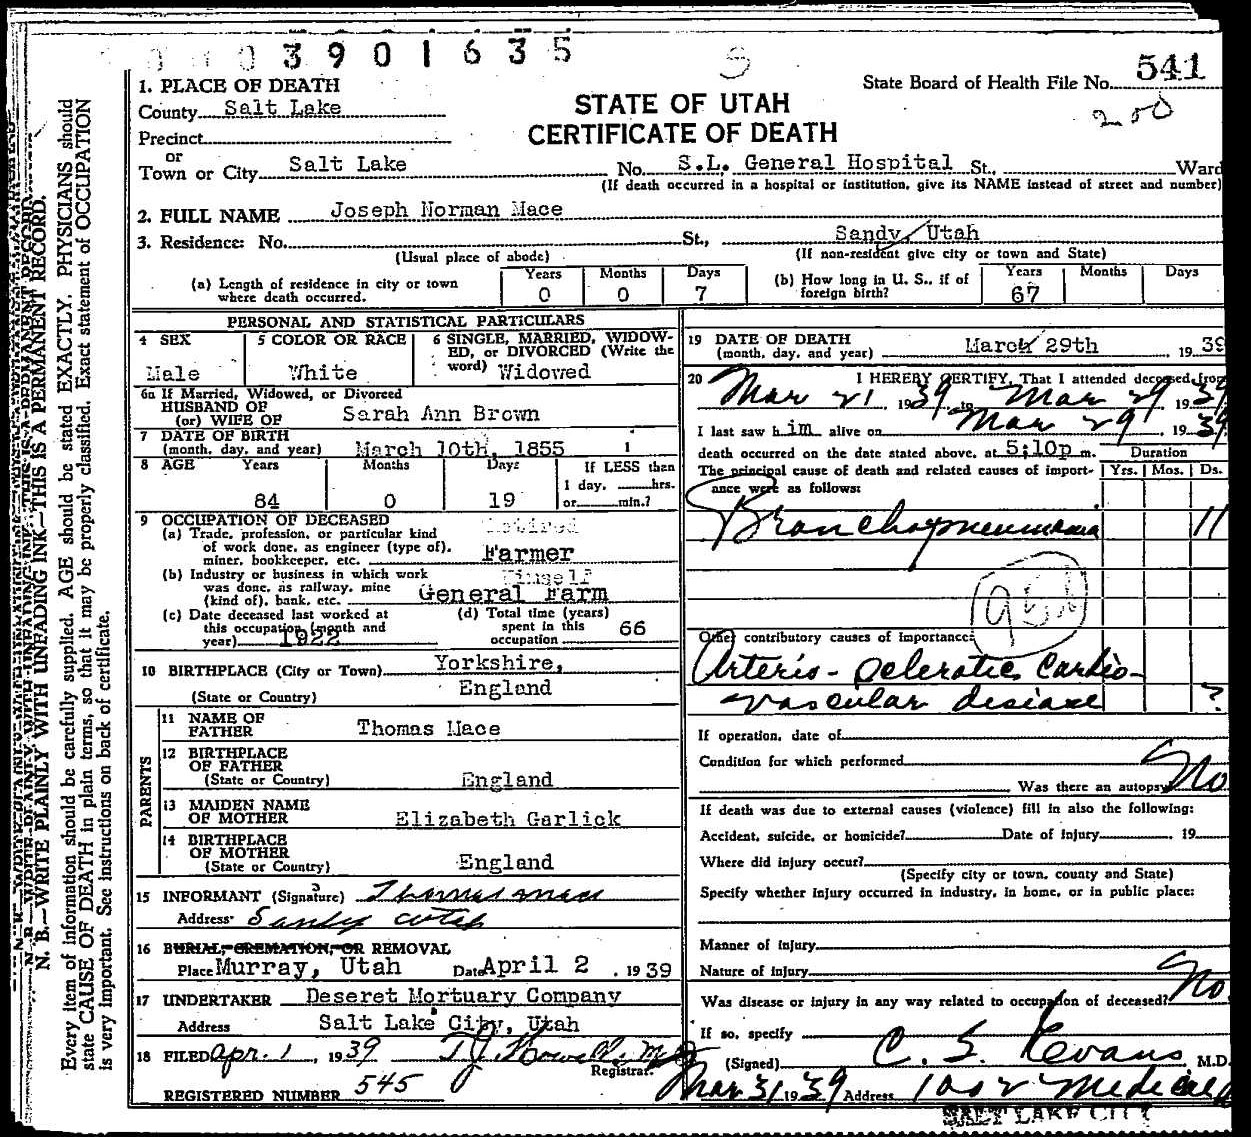 3901635
541
State Board of Health File No.
250
STATE OF UTAH
CERTIFICATE OF DEATH
1. PLACE OF DEATH
County Salt Lake
Precinct
or
Town or City Salt Lake No. S.L. General Hospital St., Ward
(If death occurred in a hospital or institution, give its NAME instead of street and number)
2. FULL NAME Joseph Norman Mace
3. Residence: No. St., Sandy, Utah
(Usual place of abode) (If non-resident give city or town and State)
(a) Length of residence in city or town where death occurred. Years 0 Months 0 Days 7
(b) How long in U. S., if of foreign birth? Years 67 Months Days
PERSONAL AND STATISTICAL PARTICULARS
4 SEX Male
5 COLOR OR RACE White
6 SINGLE, MARRIED, WIDOWED, or DIVORCED (Write the word) Widowed
6a If Married, Widowed, or Divorced
HUSBAND OF
(or) WIFE OF Sarah Ann Brown
7 DATE OF BIRTH
(month, day, and year) March 10th, 1855
8 AGE Years 84 Months 0 Days 19 If LESS than 1 day, hrs. or min.?
9 OCCUPATION OF DECEASED
(a) Trade, profession, or particular kind of work done, as engineer (type of), miner, bookkeeper, etc. Retired Farmer
(b) Industry or business in which work was done, as railway, mine (kind of), bank, etc. Himself General Farm
(c) Date deceased last worked at this occupation (month and year) 1922
(d) Total time (years) spent in this occupation 66
10 BIRTHPLACE (City or Town) Yorkshire,
(State or Country) England
PARENTS
11 NAME OF FATHER Thomas Mace
12 BIRTHPLACE OF FATHER (State or Country) England
13 MAIDEN NAME OF MOTHER Elizabeth Garlick
14 BIRTHPLACE OF MOTHER (State or Country) England
15 INFORMANT (Signature) Thomas Mace
Address Sandy Utah
16 BURIAL, CREMATION, OR REMOVAL
Place Murray, Utah Date April 2, 1939
17 UNDERTAKER Deseret Mortuary Company
Address Salt Lake City, Utah
18 FILED Apr. 1, 1939 T J Howells M D
Registrar.
REGISTERED NUMBER 545
19 DATE OF DEATH
(month, day, and year) March 29th, 1939
20 I HEREBY CERTIFY, That I attended deceased from
Mar 21 1939, to Mar 29 1939
I last saw him alive on Mar 29 1939
death occurred on the date stated above, at 5:10p m. Duration
The principal cause of death and related causes of importance were as follows: Yrs. Mos. Ds.
Bronchopneumonia 11
Other contributory causes of importance:
Arterio-scleratic Cardio-
vascular disiase ?
If operation, date of
Condition for which performed
Was there an autopsy No
If death was due to external causes (violence) fill in also the following:
Accident, suicide, or homicide? Date of injury 19
Where did injury occur?
(Specify city or town, county and State)
Specify whether injury occurred in industry, in home, or in public place:
Manner of injury
Nature of injury
Was disease or injury in any way related to occupation of deceased? No
If so, specify
(Signed) C. S. Kevans, M.D.
Mar 31 1939 Address 1002 Medical
SALT LAKE CITY
N. B.—WRITE PLAINLY WITH UNFADING INK—THIS IS A PERMANENT RECORD.
Every item of information should be carefully supplied. AGE should be stated EXACTLY. PHYSICIANS should
state CAUSE OF DEATH in plain terms, so that it may be properly classified. Exact statement of OCCUPATION
is very important. See instructions on back of certificate.